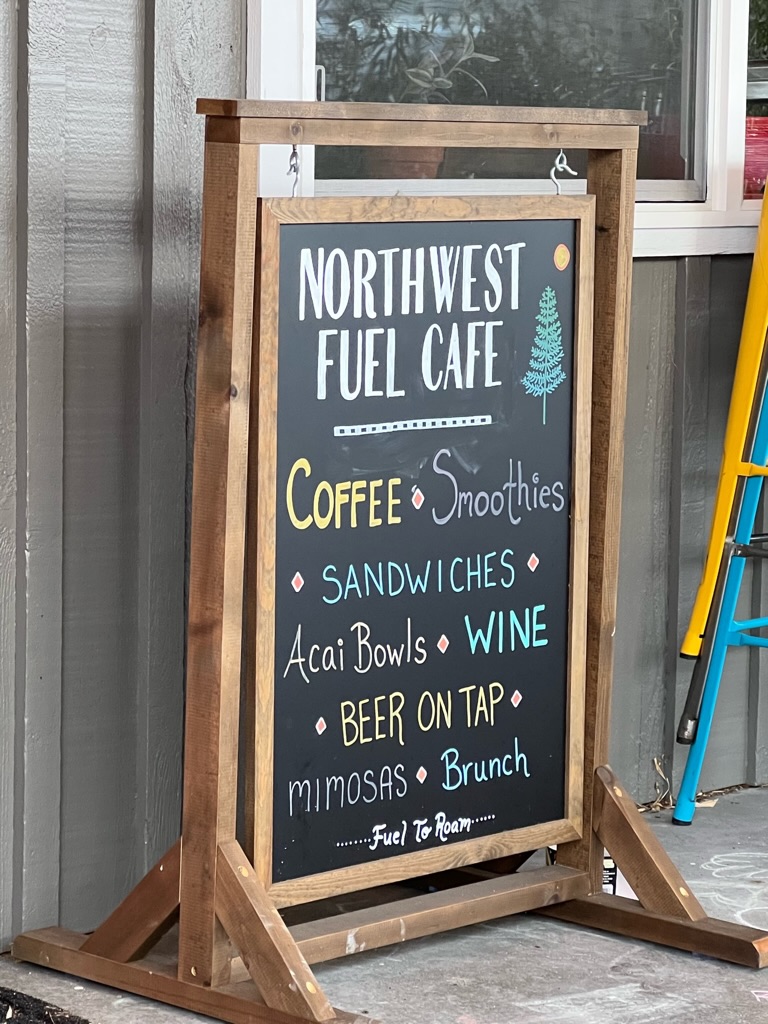 NORTHWEST
FUEL CAFE
COFFEE Smoothies
SANDWICHES
Acai Bowls WINE
BEER ON TAP
MIMOSAS Brunch
Fuel To Roam